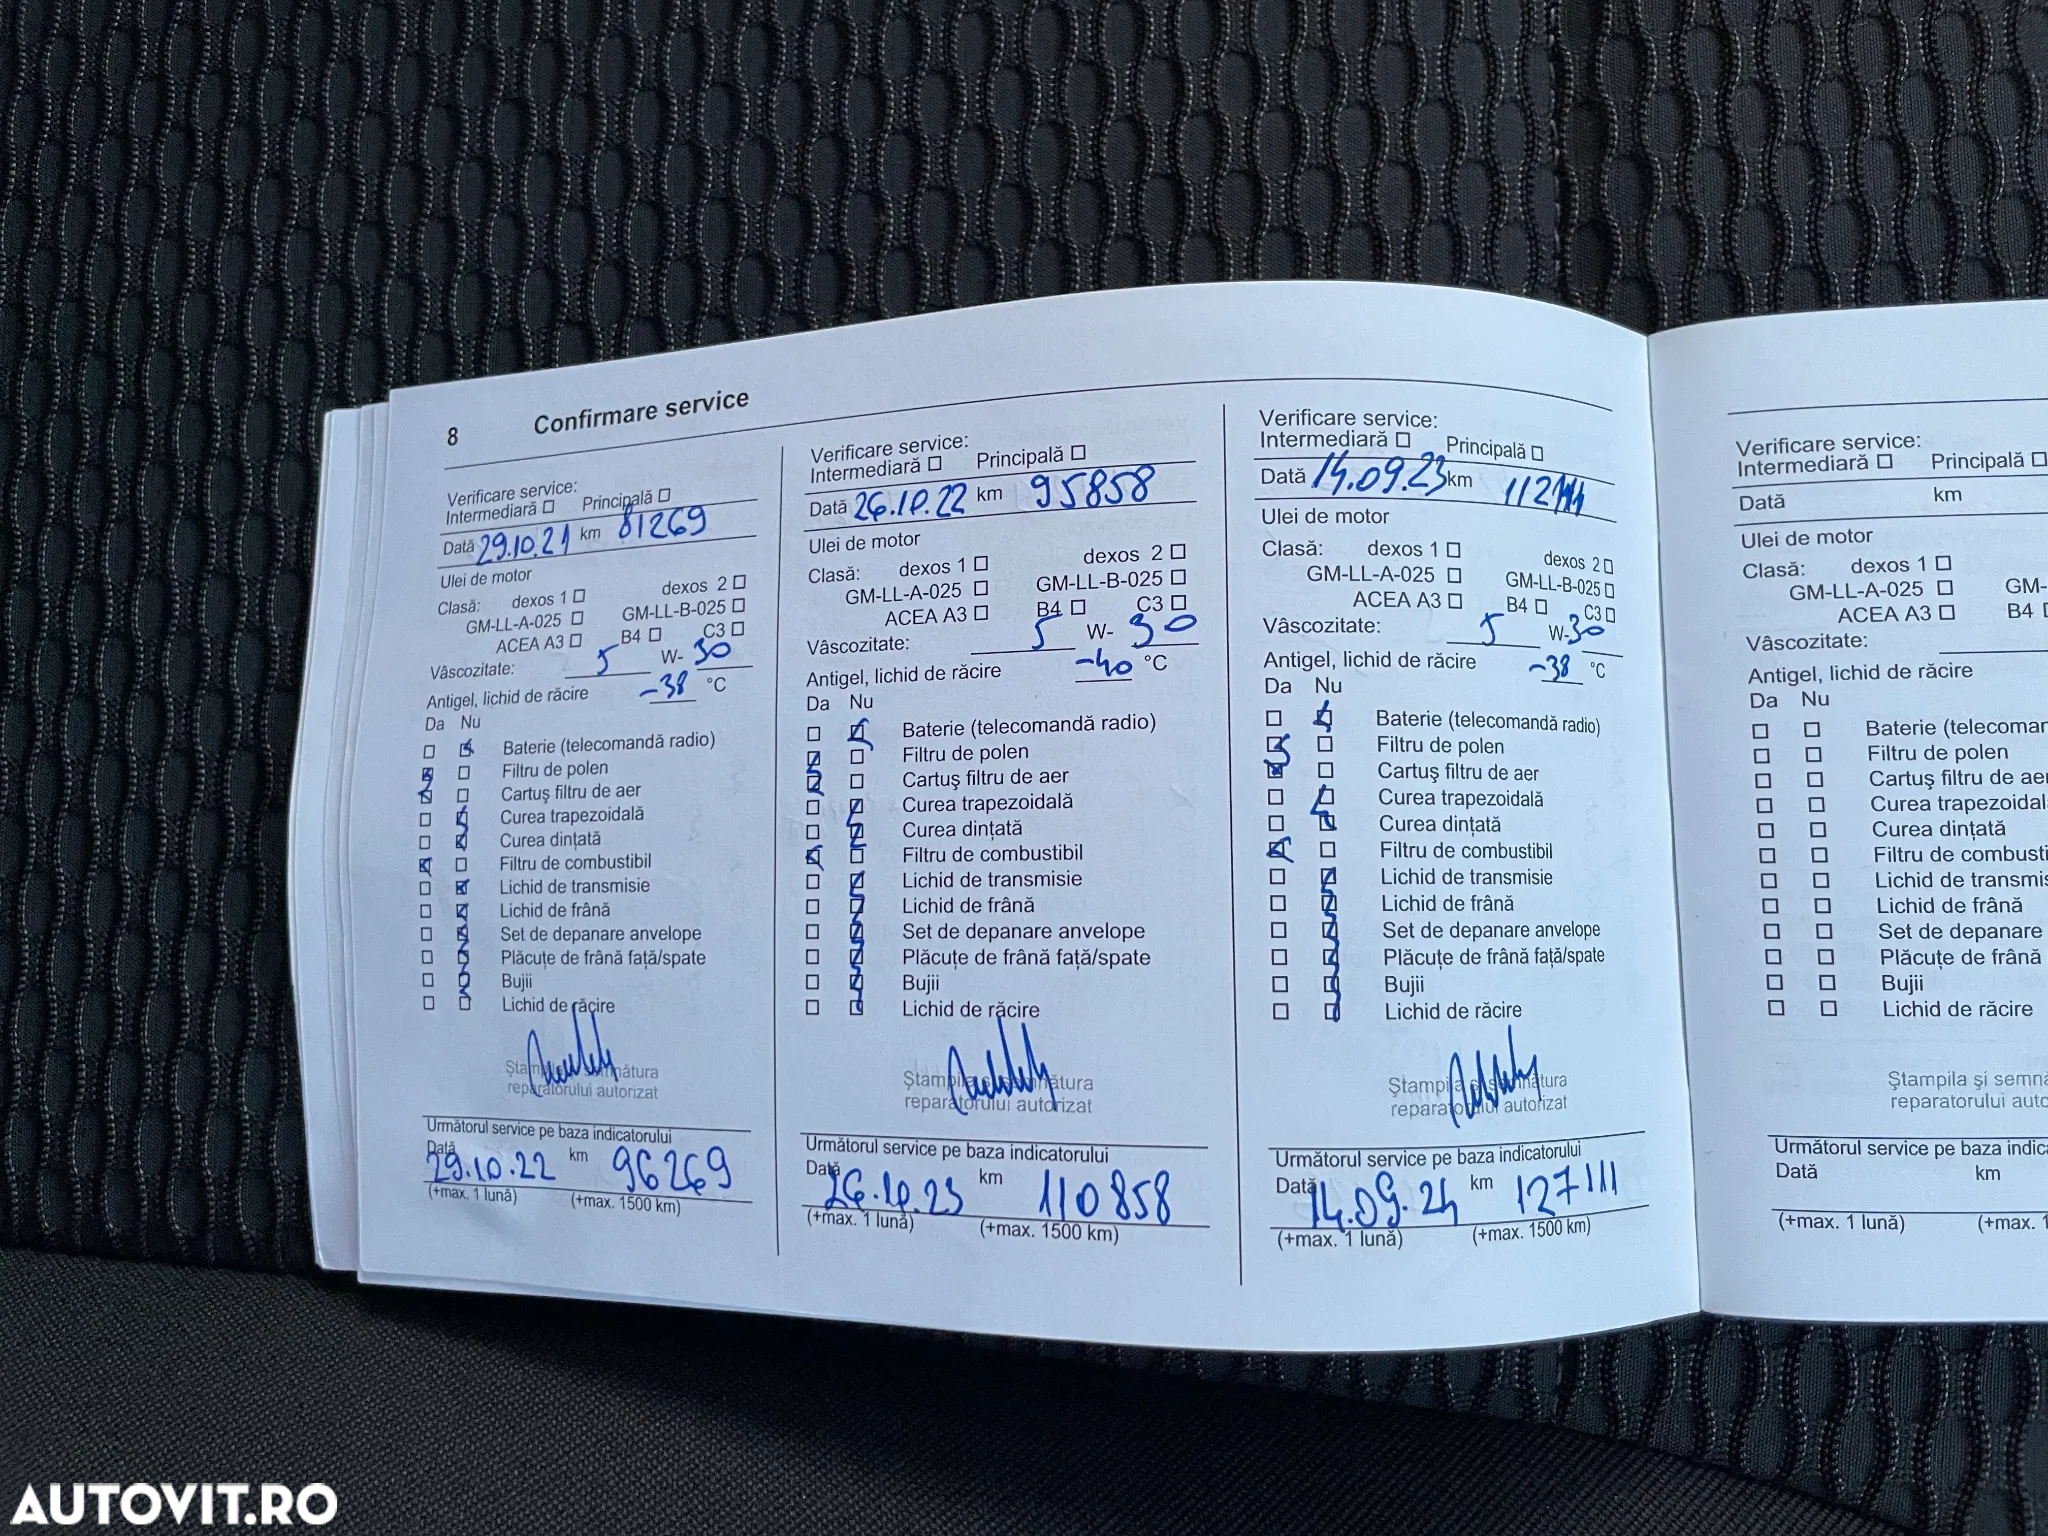 8 Confirmare service
Verificare service:
Intermediară Principală
Dată 29.10.21 km 81269
Ulei de motor
Clasă: dexos 1 dexos 2
GM-LL-A-025 GM-LL-B-025
ACEA A3 B4 C3
Vâscozitate: 5 W-30
Antigel, lichid de răcire -38 °C
Da Nu
Baterie (telecomandă radio)
Filtru de polen
Cartuş filtru de aer
Curea trapezoidală
Curea dințată
Filtru de combustibil
Lichid de transmisie
Lichid de frână
Set de depanare anvelope
Plăcuțe de frână față/spate
Bujii
Lichid de răcire
Ştampila şi semnătura
reparatorului autorizat
Următorul service pe baza indicatorului
Dată 29.10.22 km 96269
(+max. 1 lună) (+max. 1500 km)
Verificare service:
Intermediară Principală
Dată 26.10.22 km 95858
Ulei de motor
Clasă: dexos 1 dexos 2
GM-LL-A-025 GM-LL-B-025
ACEA A3 B4 C3
Vâscozitate: 5 W-30
Antigel, lichid de răcire -40 °C
Da Nu
Baterie (telecomandă radio)
Filtru de polen
Cartuş filtru de aer
Curea trapezoidală
Curea dințată
Filtru de combustibil
Lichid de transmisie
Lichid de frână
Set de depanare anvelope
Plăcuțe de frână față/spate
Bujii
Lichid de răcire
Ştampila şi semnătura
reparatorului autorizat
Următorul service pe baza indicatorului
Dată 26.10.23 km 110858
(+max. 1 lună) (+max. 1500 km)
Verificare service:
Intermediară Principală
Dată 14.09.23 km
Ulei de motor
Clasă: dexos 1 dexos 2
GM-LL-A-025 GM-LL-B-025
ACEA A3 B4 C3
Vâscozitate: 5 W-30
Antigel, lichid de răcire -38 °C
Da Nu
Baterie (telecomandă radio)
Filtru de polen
Cartuş filtru de aer
Curea trapezoidală
Curea dințată
Filtru de combustibil
Lichid de transmisie
Lichid de frână
Set de depanare anvelope
Plăcuțe de frână față/spate
Bujii
Lichid de răcire
Ştampila şi semnătura
reparatorului autorizat
Următorul service pe baza indicatorului
Dată 14.09.24 km 127111
(+max. 1 lună) (+max. 1500 km)
Verificare service:
Intermediară Principală
Dată km
Ulei de motor
Clasă: dexos 1
GM-LL-A-025 GM-
ACEA A3 B4
Vâscozitate:
Antigel, lichid de răcire
Da Nu
Baterie (telecoman
Filtru de polen
Cartuş filtru de aer
Curea trapezoidal
Curea dințată
Filtru de combusti
Lichid de transmis
Lichid de frână
Set de depanare
Plăcuțe de frână
Bujii
Lichid de răcire
Ştampila şi semnă
reparatorului auto
Următorul service pe baza indica
Dată km
(+max. 1 lună) (+max. 1
AUTOVIT.RO